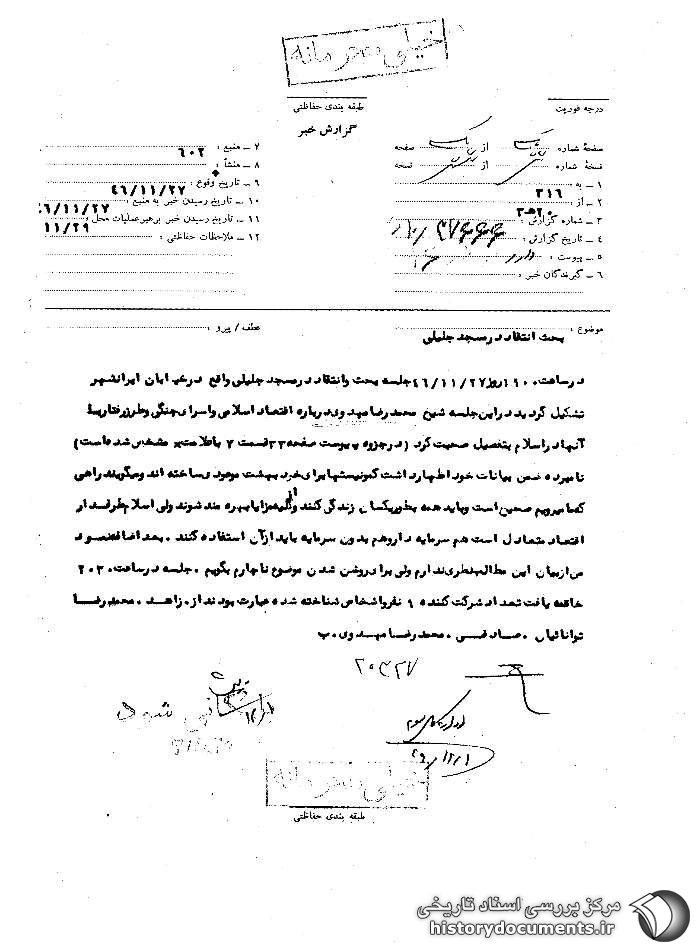 خیلی محرمانه
طبقه بندی حفاظتی
گزارش خبر
درجه فوریت
صفحهٔ شماره یک از یک صفحه
نسخهٔ شماره از نسخه
۱ ــ به
۲ ــ از : ۳۱۶
۳ ــ شماره گزارش :
۴ ــ تاریخ گزارش :
۵ ــ پیوست : دارد
۶ ــ گیرندگان خبر :
۷ ــ منبع : ۶۰۲
۸ ــ منشأ :
۹ ــ تاریخ وقوع : ۴۶/۱۱/۲۷
۱۰ ــ تاریخ رسیدن خبر به منبع : ۴۶/۱۱/۲۷
۱۱ ــ تاریخ رسیدن خبر برهبر عملیات محل و ۱۱/۲۹
۱۲ ــ ملاحظات حفاظتی :
موضوع : بحث انتقاد در مسجد جلیلی
عطف / پیرو :
در ساعت ۱۹۰۰ روز ۴۶/۱۱/۲۷ جلسه بحث وانتقاد در مسجد جلیلی واقع در خیابان ایرانشهر
تشکیل گردید در این جلسه شیخ محمد رضا مهدوی درباره اقتصاد اسلامی واسرای جنگی وطرز رفتار با
آنها در اسلام بتفصیل صحبت کرد (در جزوه پیوست صفحه ۲۳ قسمت ۷ باعلامت × مشخص شده است)
نامبرده ضمن بیانات خود اظهار داشت کمونیستها برای خود بهشت موعودی ساخته اند ومیگویند راهی
که ما میرویم صحیح است وباید همه بطور یکسان زندگی کنند واز کلیه مزایا بهره مند شوند ولی اسلام طرفدار
اقتصاد متعادل است هم سرمایه دار وهم بدون سرمایه باید از آن استفاده کنند . بعد اضافه نمود
من از بیان این مطالب نظری ندارم ولی برای روشن شدن موضوع ناچارم بگویم . جلسه در ساعت ۲۰۳۰
خاتمه یافت تعداد شرکت کننده ۹ نفر واشخاص شناخته شده عبارت بودند از . زاهد . محمد رضا
توانائیان . صادقی . محمد رضا مهدوی . ب
۲۰۳۲۷
بایگانی شود
۱۲/۱
۴۶/۱۲/۱
خیلی محرمانه
طبقه بندی حفاظتی
مرکز بررسی اسناد تاریخی
historydocuments.ir